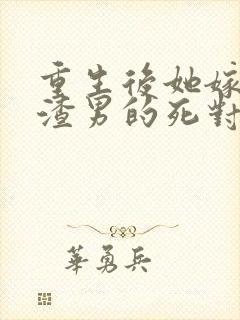 重生後她嫁
渣男的死對
華勇兵